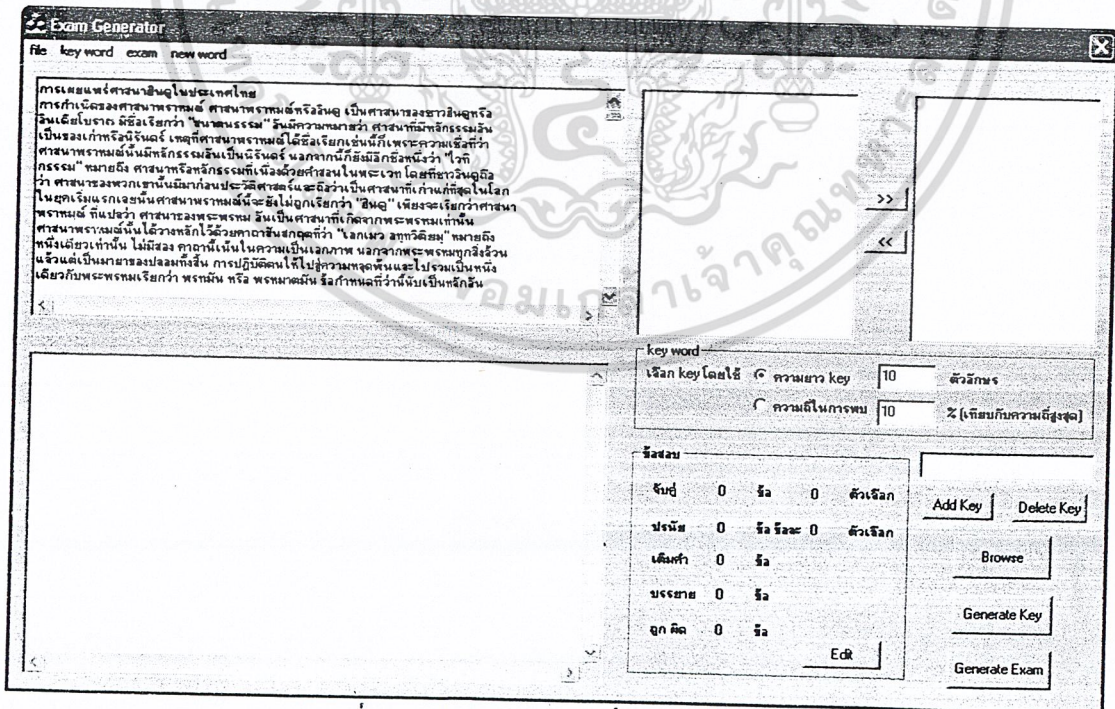 Exam Generator
file key word exam new word
การเผยแพร่ศาสนาฮินดูในประเทศไทย
การกำเนิดของศาสนาพราหมณ์ ศาสนาพราหมณ์หรือฮินดู เป็นศาสนาของชาวฮินดูหรือ
อินเดียโบราณ มีชื่อเรียกว่า "ซนาตนธรรม" อันมีความหมายว่า ศาสนาที่มีหลักธรรมอัน
เป็นของเก่าหรือนิรันดร์ เหตุที่ศาสนาพราหมณ์ได้ชื่อเรียกเช่นนี้ก็เพราะความเชื่อที่ว่า
ศาสนาพราหมณ์นั้นมีหลักธรรมอันเป็นนิรันดร์ นอกจากนี้ก็ยังมีอีกชื่อหนึ่งว่า "ไวทิ
กธรรม" หมายถึง ศาสนาหรือหลักธรรมที่เนื่องด้วยคำสอนในพระเวท โดยที่ชาวฮินดูถือ
ว่า ศาสนาของพวกเขานั้นมีมาก่อนประวัติศาสตร์และถือว่าเป็นศาสนาที่เก่าแก่ที่สุดในโลก
ในยุคเริ่มแรกเลยนั้นศาสนาพราหมณ์นี้จะยังไม่ถูกเรียกว่า "ฮินดู" เพียงจะเรียกว่าศาสนา
พราหมณ์ ที่แปลว่า ศาสนาของพระพรหม อันเป็นศาสนาที่เกิดจากพระพรหมเท่านั้น
ศาสนาพราหมณ์นั้นได้วางหลักไว้ด้วยคาถาสันสกฤตที่ว่า "เอกเมว อทฺทวิติยมฺ" หมายถึง
หนึ่งเดียวเท่านั้น ไม่มีสอง คาถานี้เน้นในความเป็นเอกภาพ นอกจากพระพรหมทุกสิ่งล้วน
แล้วแต่เป็นมายาของปลอมทั้งสิ้น การปฏิบัติตนให้ไปสู่ความหลุดพ้นและไปรวมเป็นหนึ่ง
เดียวกับพระพรหมเรียกว่า พรหมัน หรือ พรหมาตมัน ข้อกำหนดที่ว่านี้นับเป็นหลักอัน
>>
<<
key word
เลือก key โดยใช้ ความยาว key 10 ตัวอักษร
ความถี่ในการพบ 10 % (เทียบกับความถี่สูงสุด)
ข้อสอบ
จับคู่ 0 ข้อ 0 ตัวเลือก
ปรนัย 0 ข้อ ข้อละ 0 ตัวเลือก
เติมคำ 0 ข้อ
บรรยาย 0 ข้อ
ถูก ผิด 0 ข้อ
Edit
Add Key Delete Key
Browse
Generate Key
Generate Exam